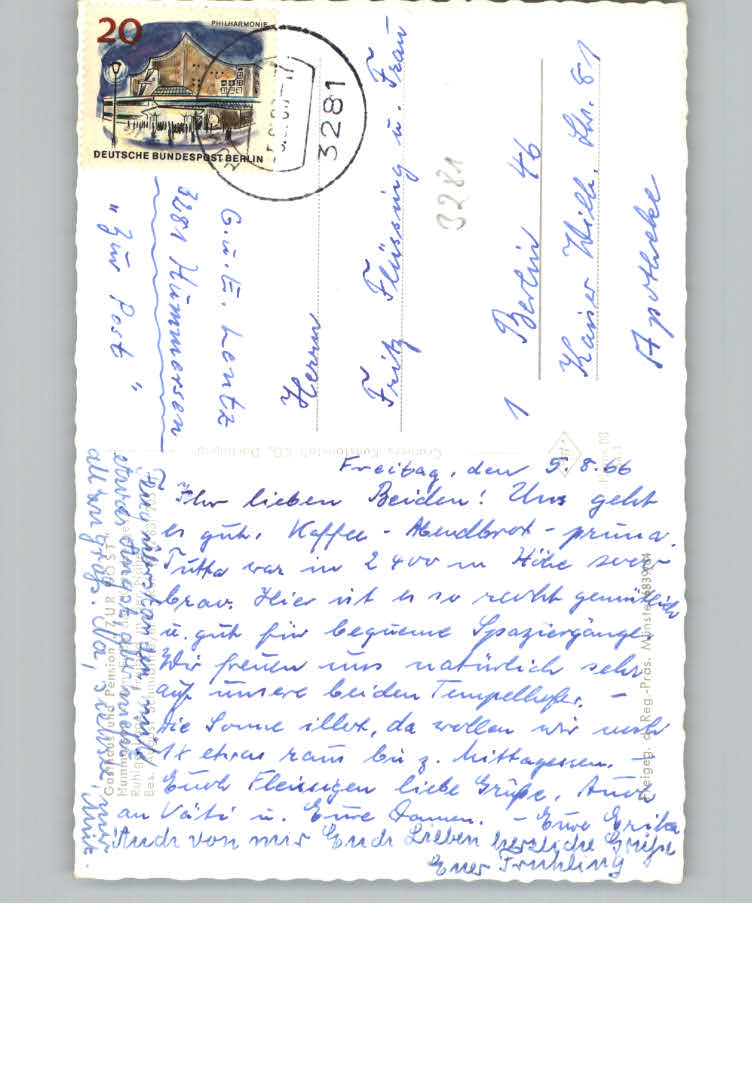 20
PHILHARMONIE
DEUTSCHE BUNDESPOST BERLIN
3281
G. u. E. Lentz
3281 Hummersen
"Zur Post"
3281
Herrn
Fritz Flässing u. Frau
1 Berlin 46
Kaiser Wilh. Str. 81
Apotheke
Cramers Kunstanstalt KG, Dortmund
Freitag, den 5.8.66
Ihr lieben Beiden! Uns geht
es gut. Kaffee - Abendbrot - prima.
Jutta war in 2400 m Höhe
brav. Hier ist es so recht gemütlich
u. gut für bequeme Spaziergänge.
Wir freuen uns natürlich sehr
auf unsere beiden Tempelhofer. -
Die Sonne , da wollen wir noch
etwas raus bis z. Mittagessen. -
Euch Fleissigen liebe Grüße. Auch
an Väti u. Eure Damen. - Eure Erika
Auch von mir Euch Lieben herzliche Grüße
Euer Frühling
etwas
allzu groß. Na, mit.
Gasthaus und Pension "ZUR POST"
Freigeg. d. Reg.-Präs. Münster